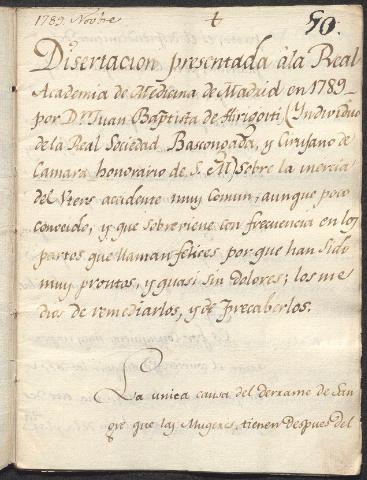 1789. Nov.bre + 50.
Disertacion presentada à la Real
Academia de Medicina de Madrid en 1789_
por D.n Juan Baptista de Arigoiti, (Yndividuo
de la Real Sociedad Bascongada, y Cirujano de
Camara honorario de S. M) Sobre la inercia
del Utero accidente muy comun, aunque poco
conocido, y que sobreviene con frecuencia en los
partos que llaman felices, por que han sido
muy prontos, y quasi sin dolores; los me
dios de remediarlos, y de precaberlos.
La unica causa del derrame de San
gre que las Mugeres tienen despues del